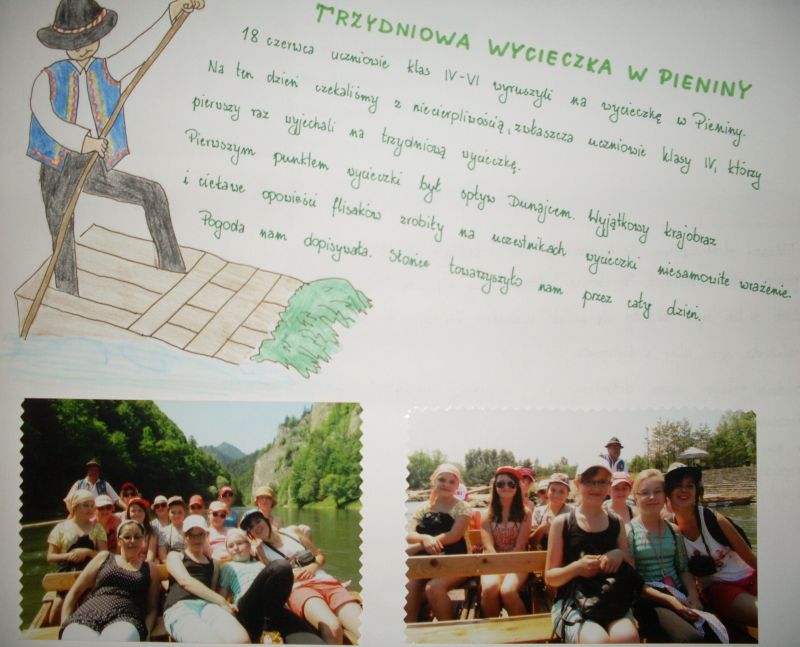 TRZYDNIOWA WYCIECZKA W PIENINY
18 czerwca uczniowie klas IV-VI wyruszyli na wycieczkę w Pieniny.
Na ten dzień czekaliśmy z niecierpliwością, zwłaszcza uczniowie klasy IV, którzy
pierwszy raz wyjechali na trzydniową wycieczkę.
Pierwszym punktem wycieczki był spływ Dunajcem. Wyjątkowy krajobraz
i ciekawe opowieści flisaków zrobiły na uczestnikach wycieczki niesamowite wrażenie.
Pogoda nam dopisywała. Słońce towarzyszyło nam przez cały dzień.